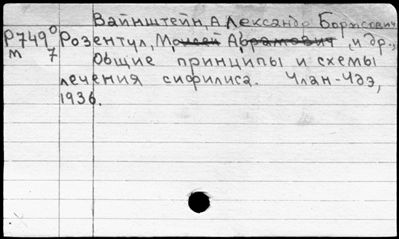 Вайнштейн, Александр Борисович
Р749⁰ Розентул, Моисей Абрамович, и др.,
м 7 Общие принципы и схемы
лечения сифилиса. Улан-Удэ,
1936.